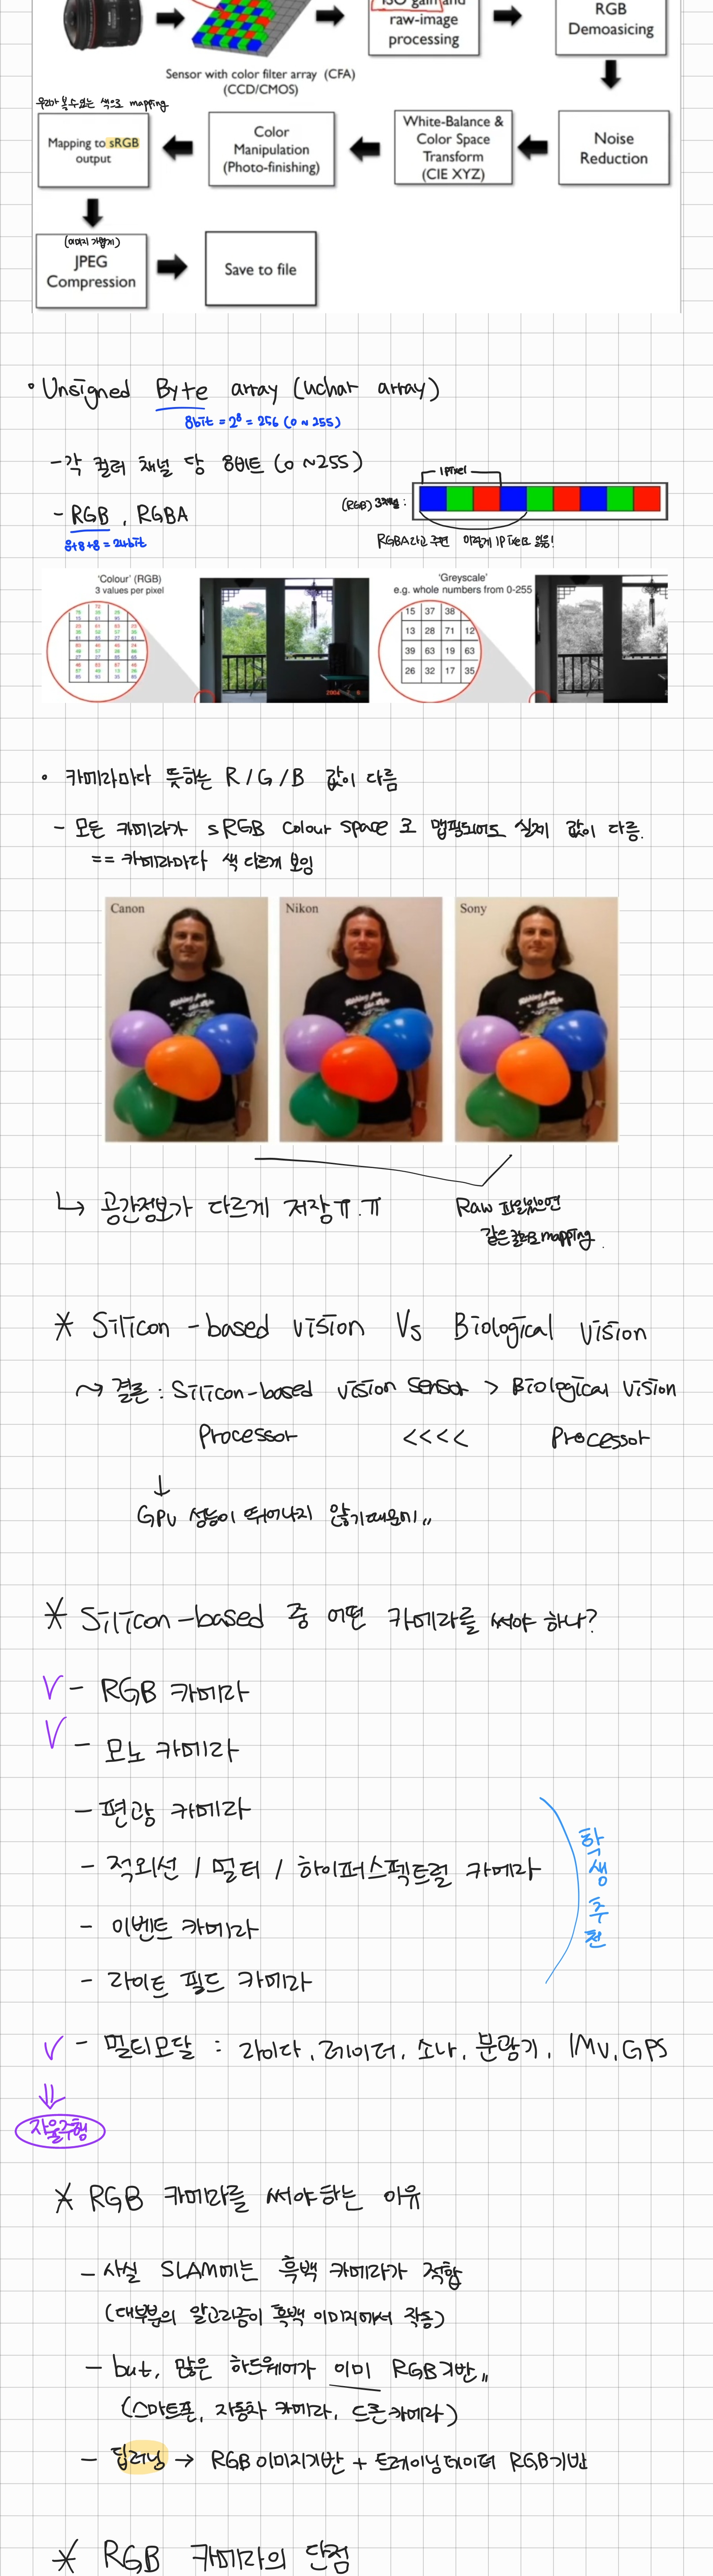 ISO gain and
raw-image
processing
RGB
Demoasicing
Sensor with color filter array (CFA)
(CCD/CMOS)
우리가 볼 수 있는 색으로 mapping
Mapping to sRGB
output
Color
Manipulation
(Photo-finishing)
White-Balance &
Color Space
Transform
(CIE XYZ)
Noise
Reduction
(이미지 가볍게)
JPEG
Compression
Save to file
• Unsigned Byte array (uchar array)
8bit = 2⁸ = 256 (0 ~ 255)
- 각 컬러 채널 당 8비트 (0 ~255)
1 pixel
- RGB , RGBA
(RGB) 3채널 :
8+8+8 = 24bit
RGBA라고 주면 이렇게 1 pixel로 읽음!
'Colour' (RGB)
3 values per pixel
'Greyscale'
e.g. whole numbers from 0-255
15 37 38
13 28 71 12
39 63 19 63
26 32 17 35
• 카메라마다 뜻하는 R/G/B 값이 다름
- 모든 카메라가 sRGB colour space로 맵핑되어도 실제 값이 다름.
== 카메라마다 색 다르게 보임
Canon
Nikon
Sony
↳ 공간정보가 다르게 저장 ㅠ.ㅠ
Raw 파일있으면
같은 컬러로 mapping.
* Silicon-based vision Vs Biological vision
~> 결론 : Silicon-based vision sensor > Biological vision
Processor <<<< Processor
↓
GPU 성능이 뛰어나지 않기 때문에,,
* Silicon-based 중 어떤 카메라를 써야 하나?
V - RGB 카메라
V - 모노 카메라
- 편광 카메라
- 적외선 / 멀티 / 하이퍼스펙트럴 카메라
- 이벤트 카메라
- 라이트 필드 카메라
학생 추천
V - 멀티모달 : 라이다, 레이더, 소나, 분광기, IMU, GPS
⇓
자율주행
* RGB 카메라를 써야하는 이유
- 사실 SLAM에는 흑백 카메라가 적합
(대부분의 알고리즘이 흑백 이미지에서 작동)
- but, 많은 하드웨어가 이미 RGB기반,,
(스마트폰, 자동차 카메라, 드론 카메라)
- 딥러닝 → RGB 이미지기반 + 트레이닝 데이터 RGB기반
* RGB 카메라의 단점